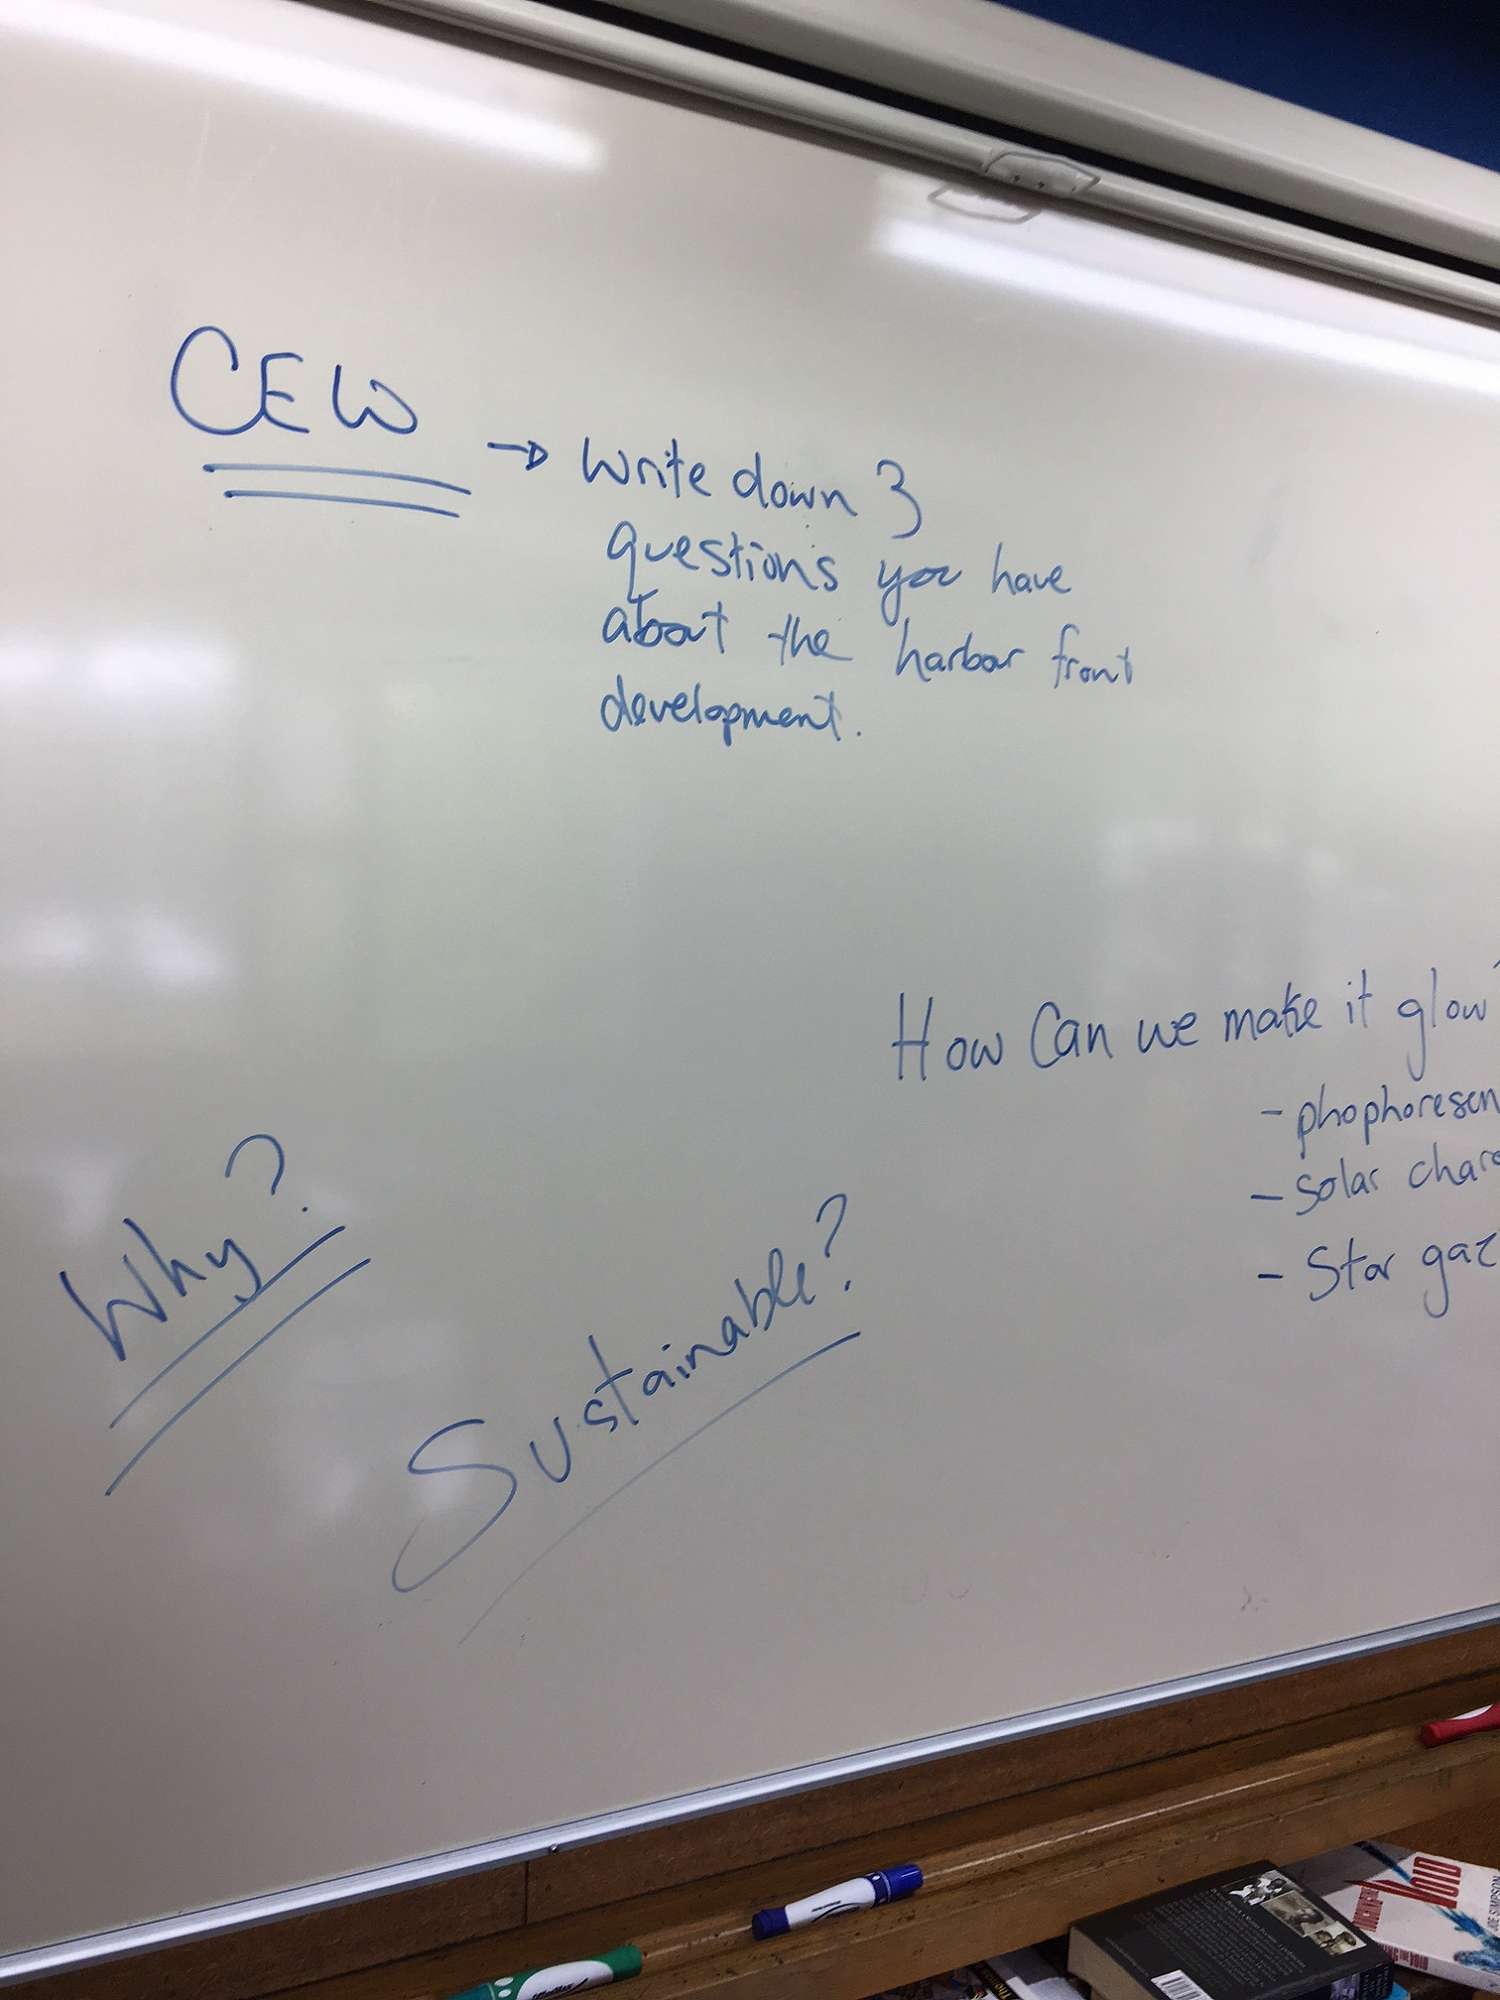 CEW
→ Write down 3
questions you have
about the harbor front
development.
How Can we make it glow?
- phophorescen
- solar charg
- Star gaz
Why?
Sustainable?
VOID
JOE SIMPSON